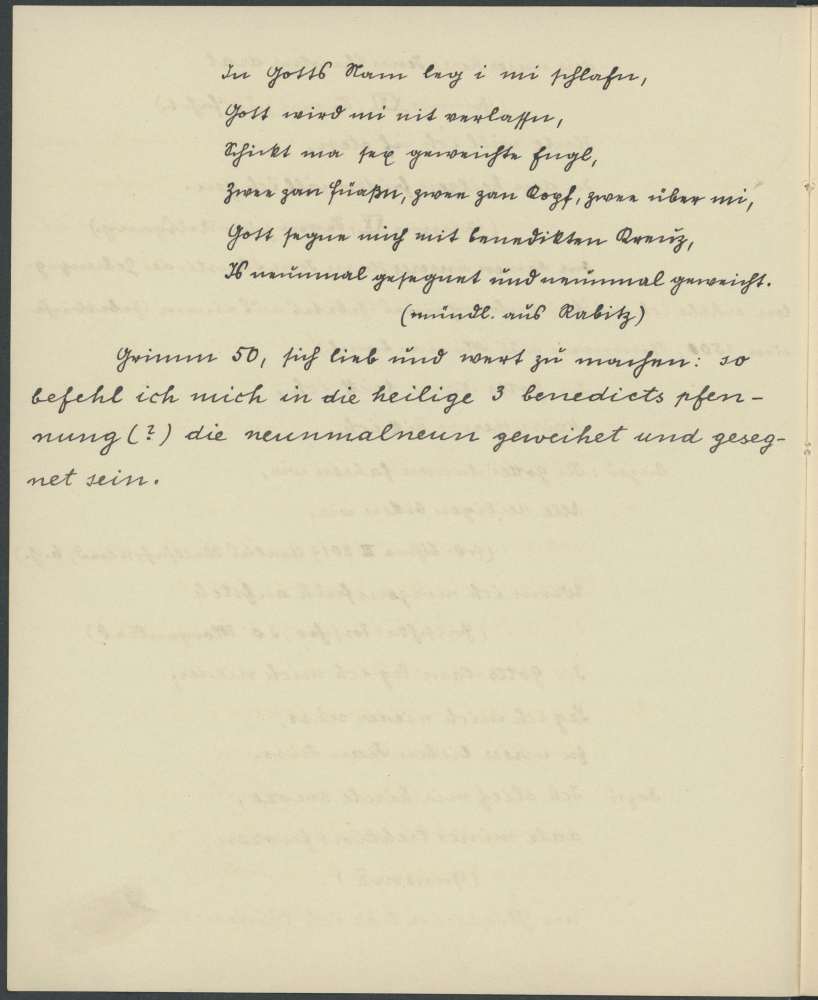 In Gotts Nam leg i mi schlafn,
Gott wird mi nit verlassn,
Schickt ma sex geweichte Engl,
Zwee zan Füaßn, zwee zan Kopf, zwee über mi,
Gott segne mich mit benedikten Kreuz,
Is neunmal gesegnet und neunmal geweicht.
(mündl. aus Rabitz)
Grimm 50, sich lieb und wert zu machen: so
befehl ich mich in die heilige 3 benedicts pfen-
nung (?) die neunmalneun geweihet und geseg-
net sein.